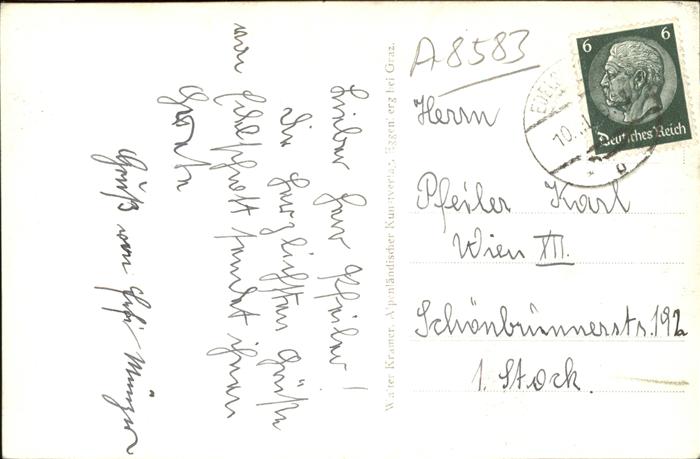 Lieber Herr Pfeiler!
Die herzlichsten Grüße
von sendet Ihnen
Grete
Gruß von
Walter Kramer, Alpenländischer Kunstverlag, Eggenberg bei Graz.
A8583
6 6
Deutsches Reich
10.
Herrn
Pfeiler Karl
Wien XII.
Schönbrunnerstr. 192
1. Stock.